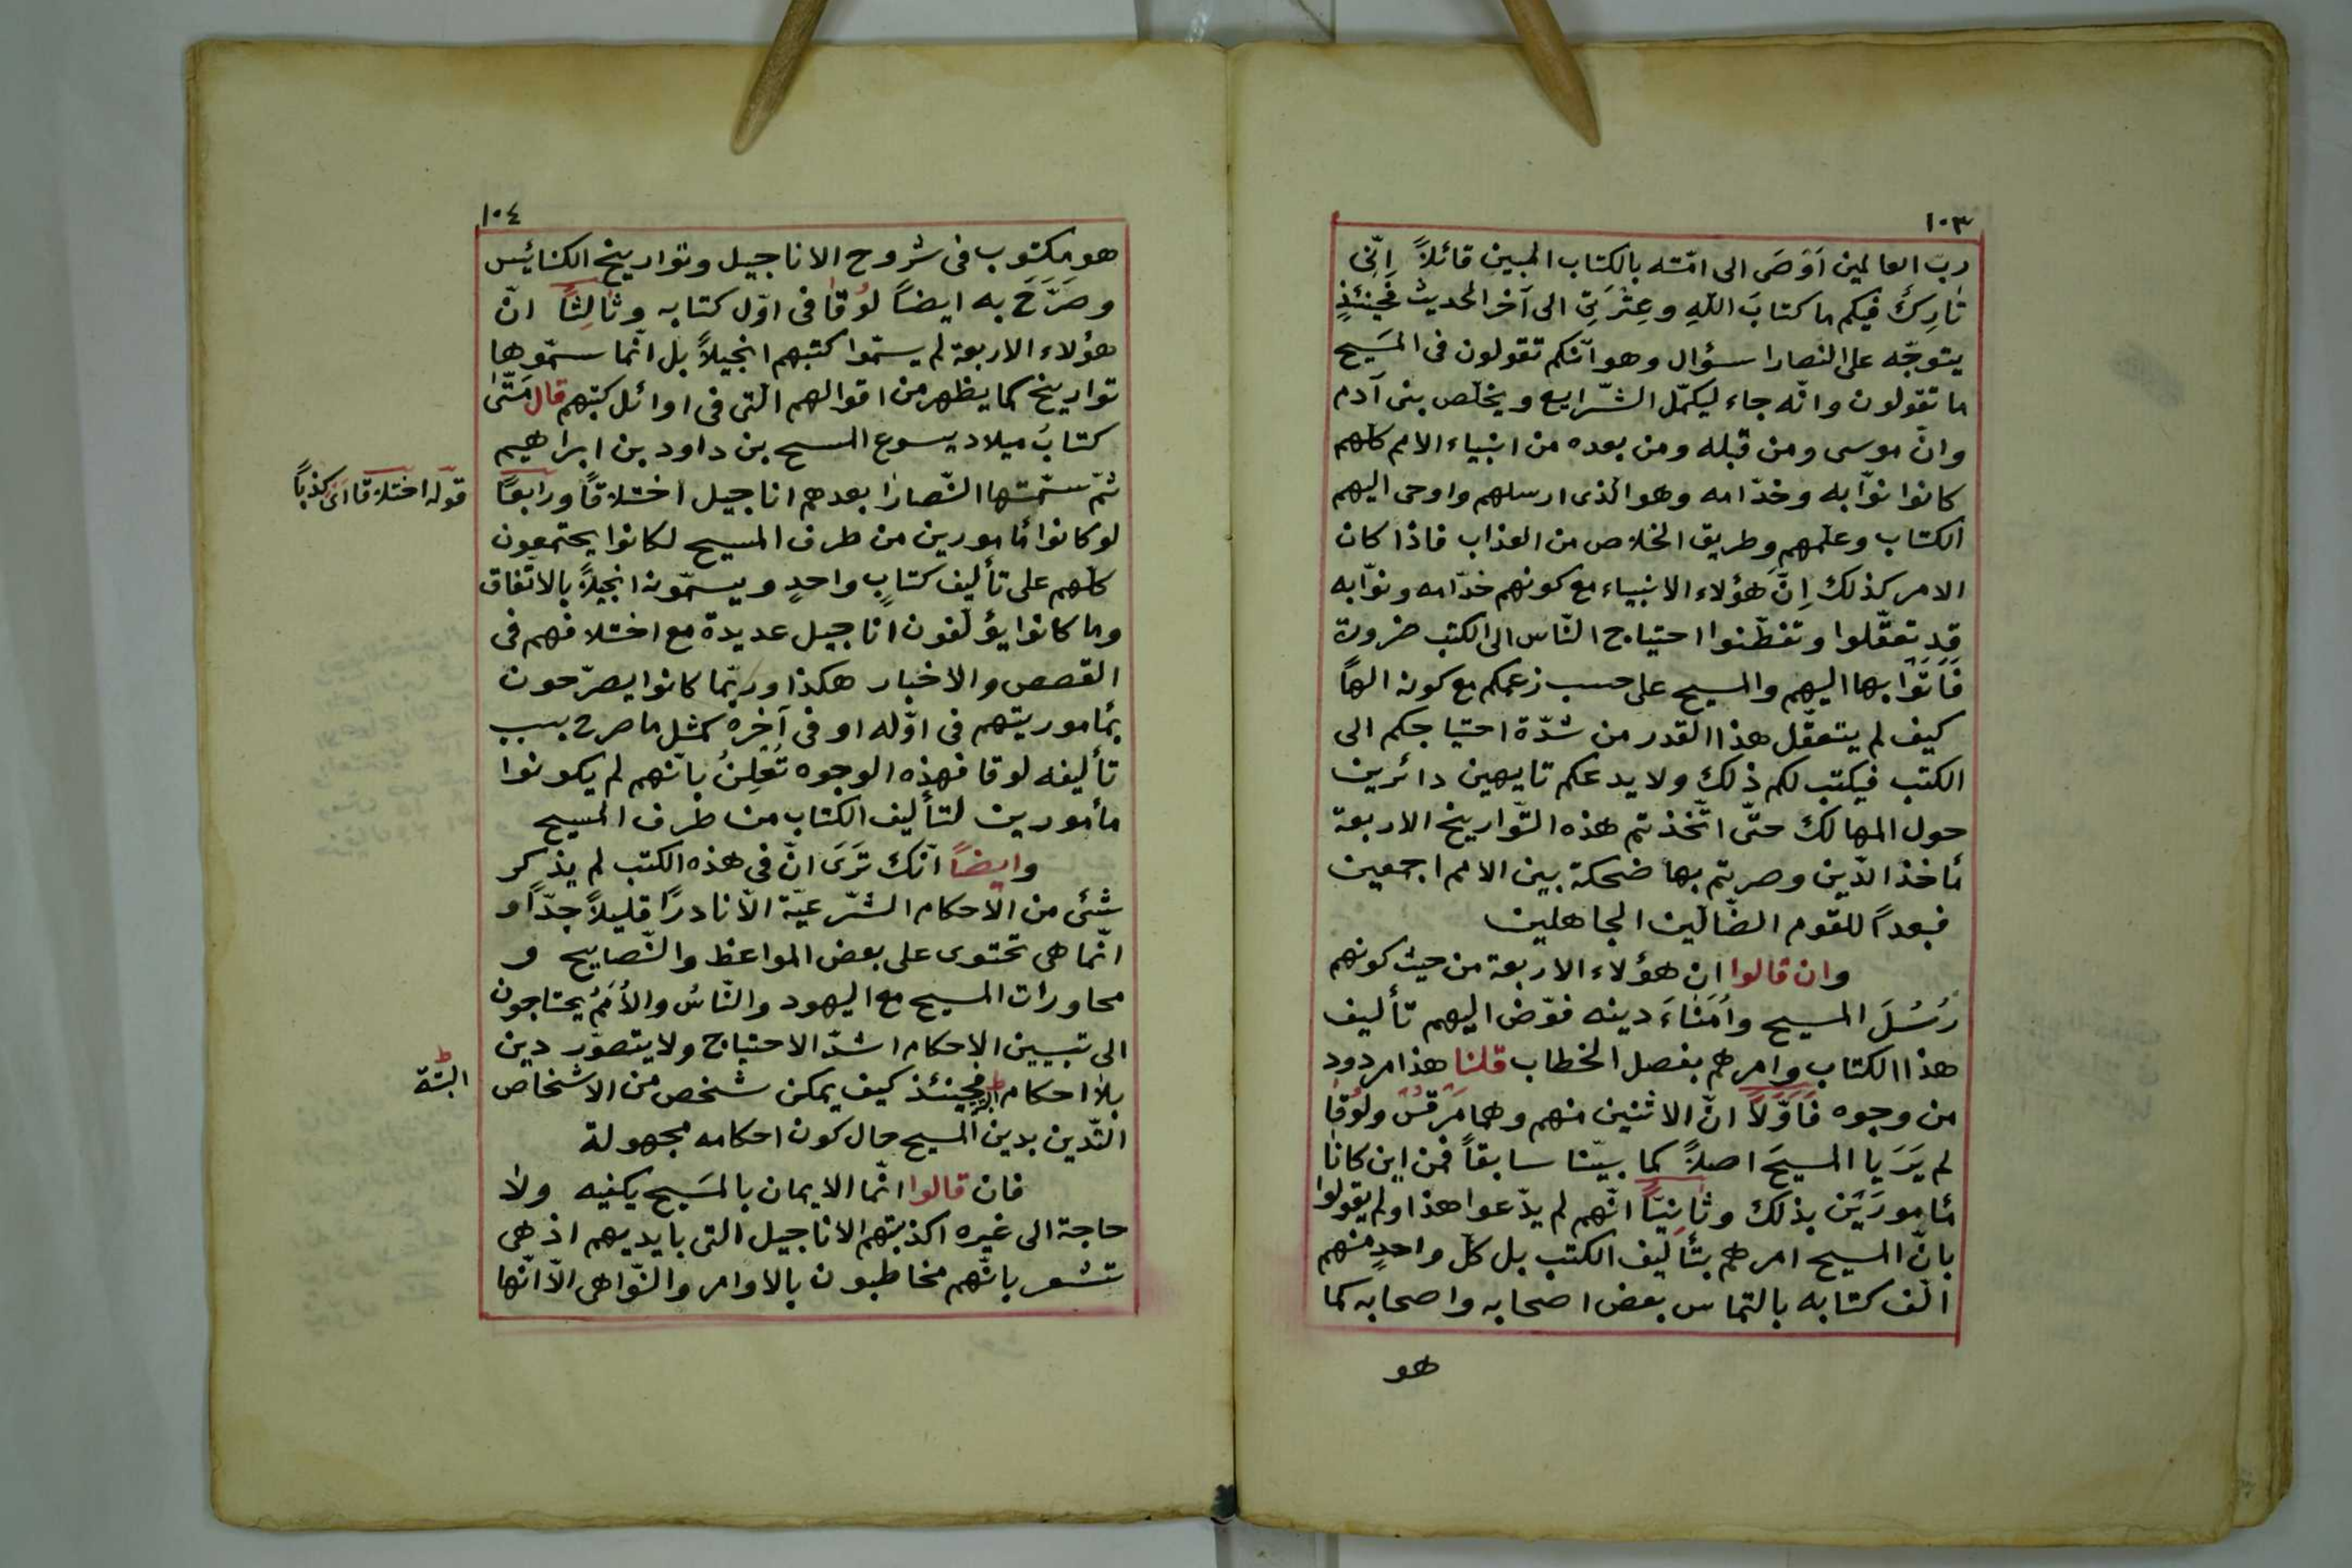 ١٠٣
ربّ العالمين اَوْصَى الى امّته بالكتاب المبين قائلاً اِنّى
تارِكٌ فيكم ما كتابَ اللّهِ وعِتْرَتى الى آخر الحديث فَحِينئذٍ
يتوجّه على النصارا سؤال وهو انّكم تقولون فى المَسيح
ما تقولون وانّه جاء ليكمّل الشّرايع ويخلّص بنى آدم
وانّ موسى ومن قبله ومن بعده من انبياء الامم كلّهم
كانوا نوّابه وخدّامه وهو الّذى ارسلهم واوحى اليهم
الكتاب وعلّمهم وطريق الخلاص من العذاب فاذا كان
الامر كذلك اِنّ هؤلاء الانبياء مع كونهم خدّامه ونوّابه
قد تعقّلوا وتفطّنوا احتياج النّاس الى الكتب ضرورة
فَاَتَوْا بها اليهم والمسيح على حسب زعمكم مع كونه الهاً
كيف لم يتعقّل هذا القدر من شدّة احتياجكم الى
الكتب فيكتب لكم ذلك ولا يدعكم تايهين دائرين
حول المهالك حتّى اتّخذتم هذه التّواريخ الاربعة
مأخذ الدّين وصرتم بها ضحكة بين الامم اجمعين
فبعداً للقوم الضّالّين الجاهلين
وان قالوا ان هؤلاء الاربعة من حيث كونهم
رُسُلَ المسيح واُمَنَاءَ دينه فوّض اليهم تأليف
هذا الكتاب وامرهم بفصل الخطاب قلنا هذا مردود
من وجوه فَاَوَّلاً انّ الاثنين منهم وهما مَرقس ولوقا
لم يَرَيا المسيحَ اصلاً كما بيّنّا سابقاً فمن اين كانا
مأمورَيْن بذلك وثانِيّاً انّهم لم يدّعوا هذا ولم يقولوا
بانّ المسيح امرهم بتأليف الكتب بل كلّ واحدٍ منهم
الّف كتابه بالتماس بعض اصحابه واصحابه كما
هو
١٠٤
هو مكتوب فى شروح الاناجيل وتواريخ الكنائيس
وصَرَّحَ به ايضاً لوقا فى اوّل كتابه وثالِثاً انّ
هؤلاء الاربعة لم يسمّوا كتبهم انجيلاً بل انّما سمّوها
تواريخ كما يظهر من اقوالهم الّتى فى اوائل كتبهم قال مَتّى
كتابُ ميلاد يسوع المسيح بن داود بن ابراهيم
ثمّ سمّتها النّصارا بعدهم اناجيل اختلاقاً ورابعاً
قوله اختلاقا اى كذباً
لو كانوا مأمورين من طرف المسيح لكانوا يجتمعون
كلّهم على تأليف كتابٍ واحدٍ ويسمّونه انجيلاً بالاتّفاق
وما كانوا يؤلّفون اناجيل عديدة مع اختلافهم فى
القصص والاخبار هكذا وربّما كانوا يصرّحون
بمأموريتهم فى اوّله او فى آخره كمثل ما صرح بسبب
تأليفه لوقا فهذه الوجوه تُعْلِنُ بانّهم لم يكونوا
مأمورين لتأليف الكتاب من طرف المسيح
وايضاً انّك تَرَى انّ فى هذه الكتب لم يذكر
شئى من الاحكام الشّرعيّة الّا نادرًا قليلاً جدّاً و
انّما هى تحتوى على بعض المواعظ والنّصايح و
محاورات المسيح مع اليهود والنّاسُ والاُمَمُ يحتاجون
الى تبيين الاحكام اشدّ الاحتياج ولا يتصوّر دين
بلا احكام فحينئذ كيف يمكن شخص من الاشخاص
البتّة
التّدين بدين المسيح حال كون احكامه مجهولة
فان قالوا انّما الايمان بالمَسيح يكفيه ولا
حاجة الى غيره اكذبتهم الاناجيل التى بايديهم اذ هى
تشعر بانّهم مخاطبون بالاوامر والنّواهى الّا انّها